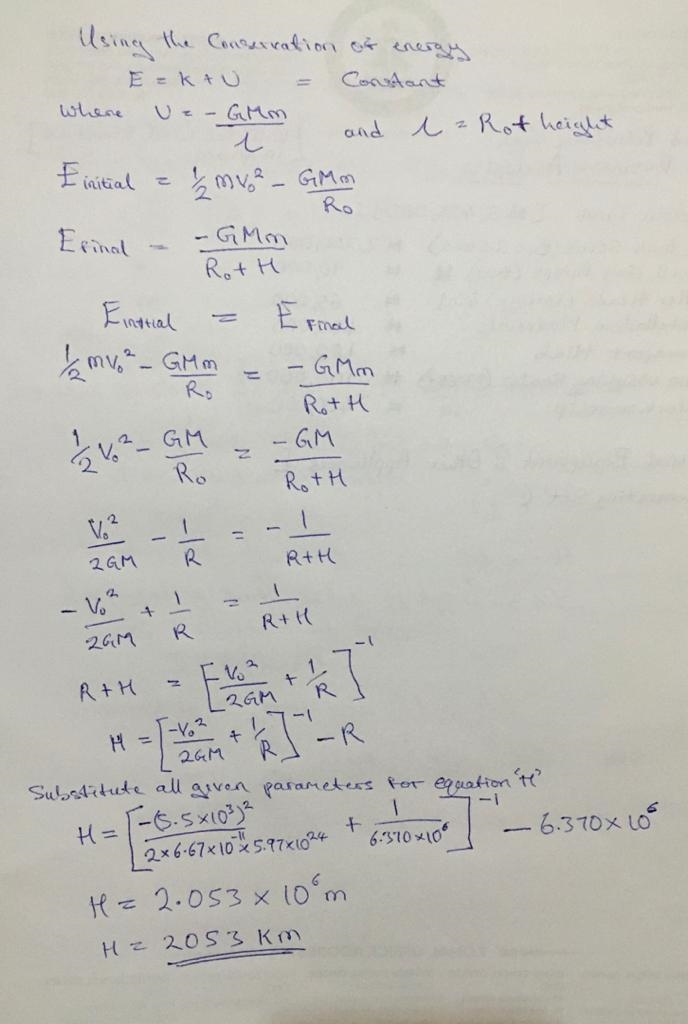 Using the Conservation of energy
E = K + U = Constant
where U = - GMm / r and r = R₀ + height
E initial = 1/2 mV₀² - GMm / R₀
E final = - GMm / R₀ + H
E initial = E Final
1/2 mV₀² - GMm / R₀ = - GMm / R₀ + H
1/2 V₀² - GM / R₀ = - GM / R₀ + H
V₀² / 2GM - 1 / R = - 1 / R + H
- V₀² / 2GM + 1 / R = 1 / R + H
R + H = [ - V₀² / 2GM + 1 / R ]⁻¹
H = [ - V₀² / 2GM + 1 / R ]⁻¹ - R
Substitute all given parameters for equation 'H'
H = [ -(5.5 x 10³)² / 2 x 6.67 x 10⁻¹¹ x 5.97 x 10²⁴ + 1 / 6.370 x 10⁶ ]⁻¹ - 6.370 x 10⁶
H = 2.053 x 10⁶ m
H = 2053 Km